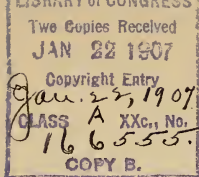 LIBRARY of CONGRESS
Two Copies Received
JAN 22 1907
Copyright Entry
Jan. 22, 1907
CLASS A XXc., No.
166555.
COPY B.